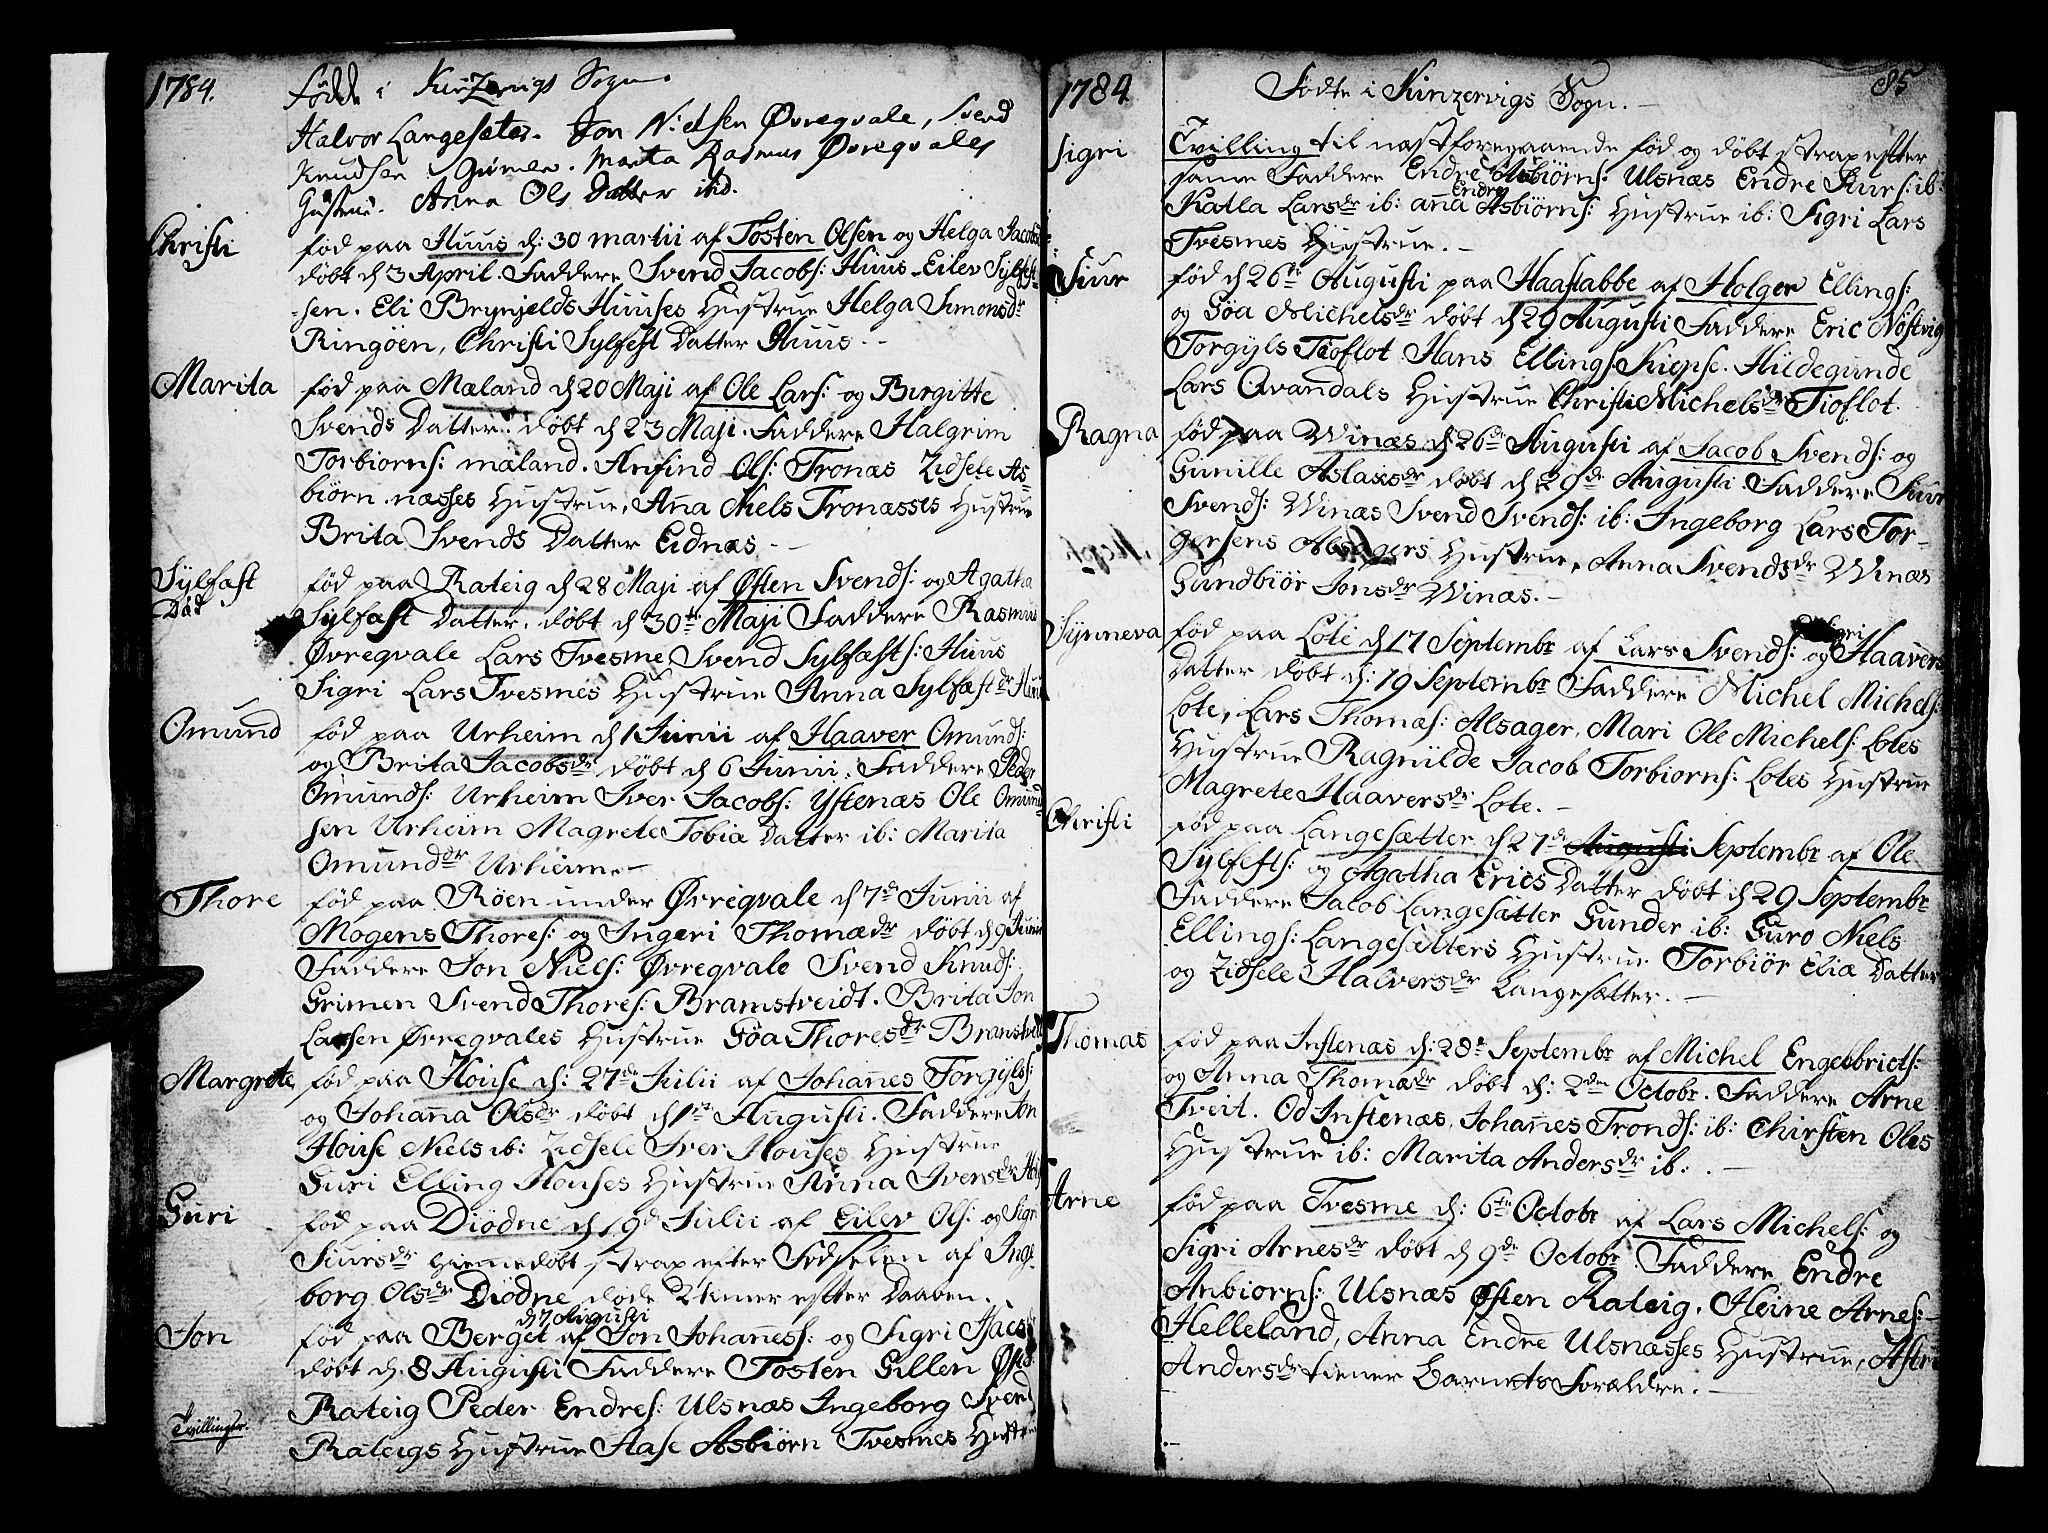 1784. Fødde i Kinzervigs Sogn.
Halvor Langesæter. Jon Nielsen Øvreqvale, Svend
Knudsen Grimen. Marita Rasmus Øvreqvales
Hustrue. Anna Ols Datter ibd.
Christi
fød paa Huus d: 30 martii af Tosten Olsen og Helga Jacobs
døbt d 3 April. Faddere Svend Jacobs: Huus Eilev Sylfest-
sen. Eli Brynjelds Huuses Hustrue Helga Simonsdr
Ringøen, Christi Sylfest Datter Huus.-
Marita
fød paa Mæland d 20 Maji af Ole Lars: og Birgitte
Svends Datter: døbt d 23 Maji. Faddere Halgrim
Torbiorns: mæland. Anfind Ols: Tronæs Zidsele As
biørn næsses Hustrue, Anna Niels Tronæsses Hustrue
Brita Svends Datter Eidnæs -
Sylfæst
Død
fød paa Rateig d 28 Maji af Østen Svends: og Agatha
Sylfæst Datter. døbt d 30te Maji Faddere Rasmus
Øvreqvale Lars Tvesme Svend Sylfæsts: Huus
Sigri Lars Tvesmes Hustrue Anna Sylfæstdr Huus
Omund
fød paa Urheim d 1 Junii af Haaver Omunds:
og Brita Jacobsdr døbt d 6 Junii. Faddere Peder
Omunds: Urheim Iver Jacobs: Ystenæs Ole Omund
sen Urheim Magrete Tobiæ Datter ib: Marita
Omunddr Urheim.-
Thore
fød paa Røen under Øvreqvale d 7de Junii af
Mogens Thores: og Ingeri Thomædr døbt d 9 Junii
Faddere Jon Niels: Øvreqvale Svend Knuds:
Grimen Svend Thores: Bramstveidt. Brita Jon
Larsen Øvreqvales Hustrue Göa Thoresdr Bramstveit
Margrete
fød paa House d: 27de Julii af Johannes Torgyls:
og Johanna Olsdr døbt d 1te Augusti. Faddere Jon
House Niels ib: Zidsele Iver Houses Hustrue
Guri Elling Houses Hustrue Anna Iversdr
Guri
fød paa Diödne d 19d Julii af Eilev Ols: og Sigri
Siursdr hiemedøbt strax efter Fødselen af Inge
borg Olsdr Diödne døde 2 timer efter Daaben.
Jon
d 7 Augusti
fød paa Berget af Jon Johannes: og Sigri Isacs
døbt d. 8 Augusti Faddere Tosten Gillen Østen
Rateig Peder Endres: Ulsnæs Ingeborg Svend
Tvillinger.
Rateigs Hustrue Aase Asbiørn Tvesmes Hustrue
1784 Fødte i Kinzervigs Sogn.- 85
Sigri
Tvilling til næstforegaaende fød og døbt strax efter
same Faddere Endre Asbiörns: Ulsnæs Endre Siurs: ib:
Katla Larsdr ib: anna Endre Asbiörns: Hustrue ib: Sigri Lars
Tvesmes Hustrue.-
Siur
fød d 26te Augusti paa Haastabbe af Holger Ellings:
og Göa Michelsdr døbt d 29 Augusti Faddere Eric Nöstvig
Torgyls Tioflot. Hans Ellings: Kiepse. Hildegunde
Lars Qvandals Hustrue Christi Michelsdr Tioflot.
Ragna
fød paa Winæs d 26de Augusti af Jacob Svends: og
Gunille Aslaksdr døbt d 29de Augusti. Faddere Siur
Svends: Winæs Svend Svends: ib: Ingeborg Lars Tor-
gersens Alsagers Hustrue, Anna Svendsdr Winæs
Gundbiör Jonsdr Winæs.-
Synneva
fød paa Lote d 17 Septembr af Lars Svends: og Sigri Haavers
Datter døbt d: 19 Septembr Faddere Michel Michels:
Lote, Lars Thomæs: Alsager, Mari Ole Michels: Lotes
Hustrue Ragnilde Jacob Torbiorns: Lotes Hustrue
Magrete Haaversdr Lote.-
Christi
fød paa Langesætter d 27de Augusti Septembr af Ole
Sylfests: og Agatha Erics Datter døbt d 29 Septembr
Faddere Jacob Langesætter Gunder ib: Guro Niels
Ellings: Langesetters Hustrue Torbiör Eliæ Datter
og Zidsele Halversdr Langesætter.-
Thomas
fød paa Instenæs d: 28t Septembr af Michel Engebricts:
og Anna Thomædr døbt d: 2den Octobr. Faddere Arne
Tveit. Od Instenæs, Johannes Tronds: ib: Chirsten Oles
Hustrue ib: Marita Andersdr ib: -
Arne
fød paa Tvesme d: 6te Octobr af Lars Michels: og
Sigri Arnesdr døbt d 9de Octobr. Faddere Endre
Anbiorns: Ulsnæs Østen Rateig. Heine Arnes:
Helleland, Anna Endre Ulsnæsses Hustrue, Astri
Andersdr tiener Barnets Forældre.-